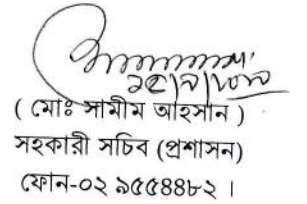 ( মোঃ সামীম আহসান )
সহকারী সচিব (প্রশাসন)
ফোন-০২ ৯৫৫৪৪৮২ ।